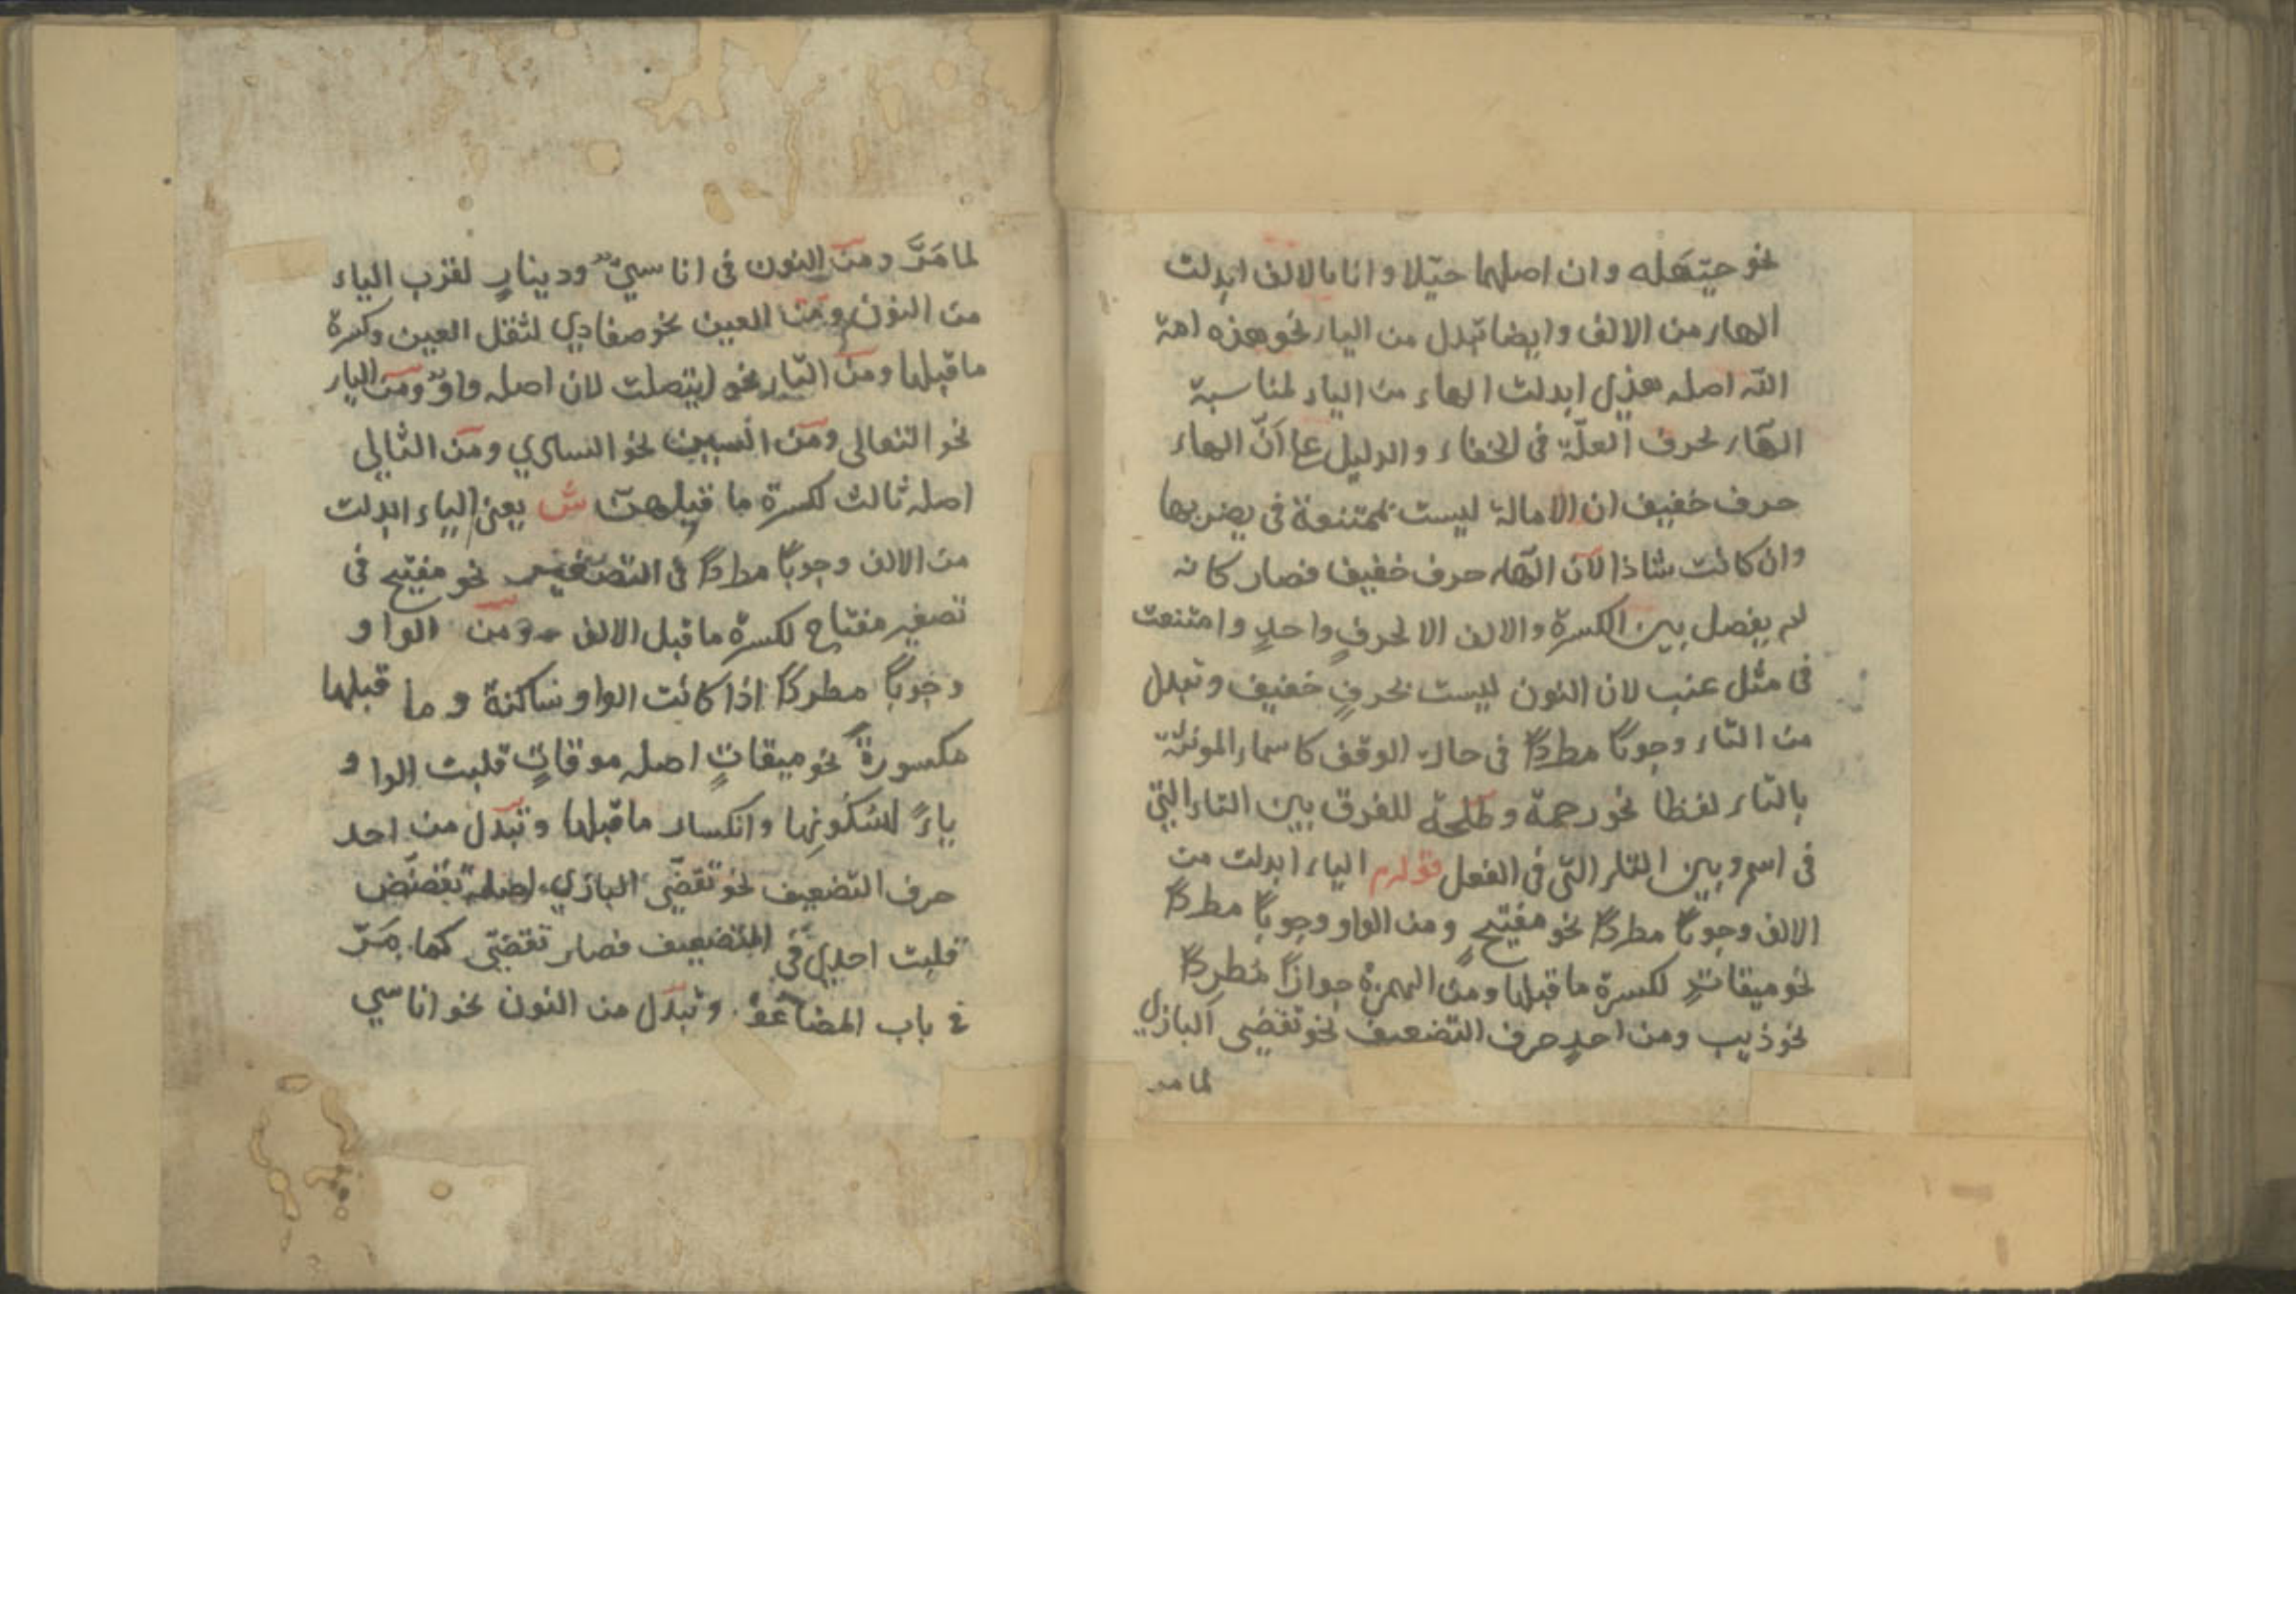 نحو حيّهله وان اصلهما حيّلا وانا بالالف ابدلت
الهاء من الالف وايضا تبدل من الياء نحو هذه امة
اللّه اصله هذي ابدلت الهاء من الياء لمناسبة
الهاء لحرف العلّة في الخفاء والدليل على انّ الهاء
حرف خفيف ان الامالة ليست بممتنعة في يضربها
وان كانت شاذا لانّ الهاء حرف خفيف فصار كانه
لم يفصل بين الكسرة والالف الا لحرفٍ واحدٍ وامتنعت
في مثل عنب لان النون ليست بحرفٍ خفيف وتبدل
من التاء وجوبًا مطردًا في حالة الوقف كاسماء المونثة
بالتاء لفظا نحو رحمة وطلحة للفرق بين التاء التي
في اسم وبين التاء التي في الفعل قوله م الياء ابدلت من
الالف وجوبًا مطردًا نحو مفيتيحٍ ومن الواو وجوبًا مطردًا
نحو ميقاتٍ لكسرة ما قبلها ومن الهمزة جوازًا مطردًا
نحو ذيب ومن احدٍ حرف التضعيف نحو تقضي البازي
لما مر
لما مَرَّ ومن النون في اناسيّ ودينارٍ لقرب الياء
من النون ومن العين نحو صفادي لثقل العين وكسرة
ما قبلها ومن التاء نحو ايتصلت لان اصله واوٌ ومن الياء
نحو الثعالى ومن السين نحو السادي ومن الثالي
اصله ثالث لكسرة ما قبلهن ش يعني الياء ابدلت
من الالف وجوبًا مطردًا في التصغير نحو مفيتيح في
تصغير مفتاح لكسرة ما قبل الالف ومن الواو
وجوبًا مطردًا اذا كانت الواو ساكنة وما قبلها
مكسورةً نحو ميقاتٍ اصله موقاتٍ قلبت الواو
ياءً لسُكُونِها وانكسار ما قبلها وتبدل من احد
حرف التضعيف نحو تقضّى البازي اصله تقضّض
قلبت احدي في التضعيف فصار تقضّى كما مَرّ
في باب المضاعف وتبدل من النون نحو اناسي